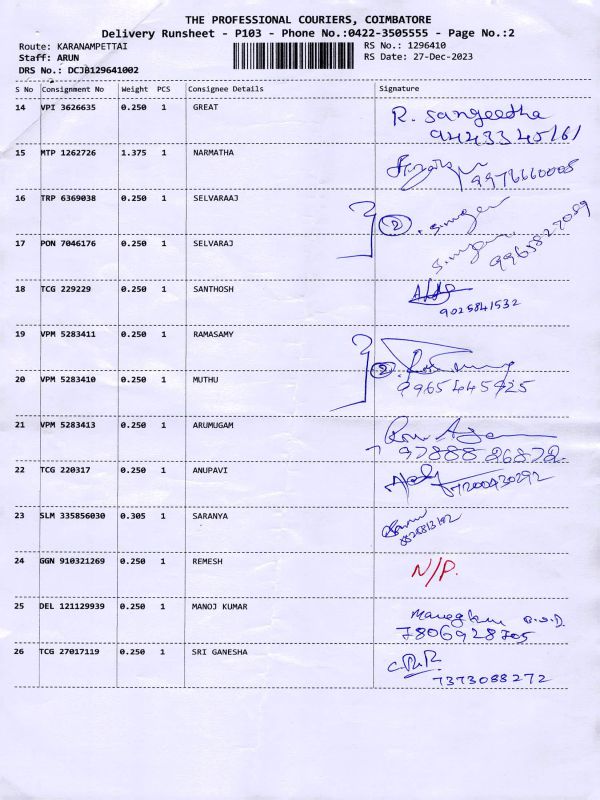 THE PROFESSIONAL COURIERS, COIMBATORE
Delivery Runsheet - P103 - Phone No.:0422-3505555 - Page No.:2
Route: KARANAMPETTAI RS No.: 1296410
Staff: ARUN RS Date: 27-Dec-2023
DRS No.: DCJB129641002
S No Consignment No Weight PCS Consignee Details Signature
14 VPI 3626635 0.250 1 GREAT R. Sangeetha
15 MTP 1262726 1.375 1 NARMATHA
16 TRP 6369038 0.250 1 SELVARAAJ 2
17 PON 7046176 0.250 1 SELVARAJ
18 TCG 229229 0.250 1 SANTHOSH
9025841532
19 VPM 5283411 0.250 1 RAMASAMY 2
20 VPM 5283410 0.250 1 MUTHU
21 VPM 5283413 0.250 1 ARUMUGAM
22 TCG 220317 0.250 1 ANUPAVI
23 SLM 335856030 0.305 1 SARANYA
24 GGN 910321269 0.250 1 REMESH N/P.
25 DEL 121129939 0.250 1 MANOJ KUMAR
7806928705
26 TCG 27017119 0.250 1 SRI GANESHA
7373088272